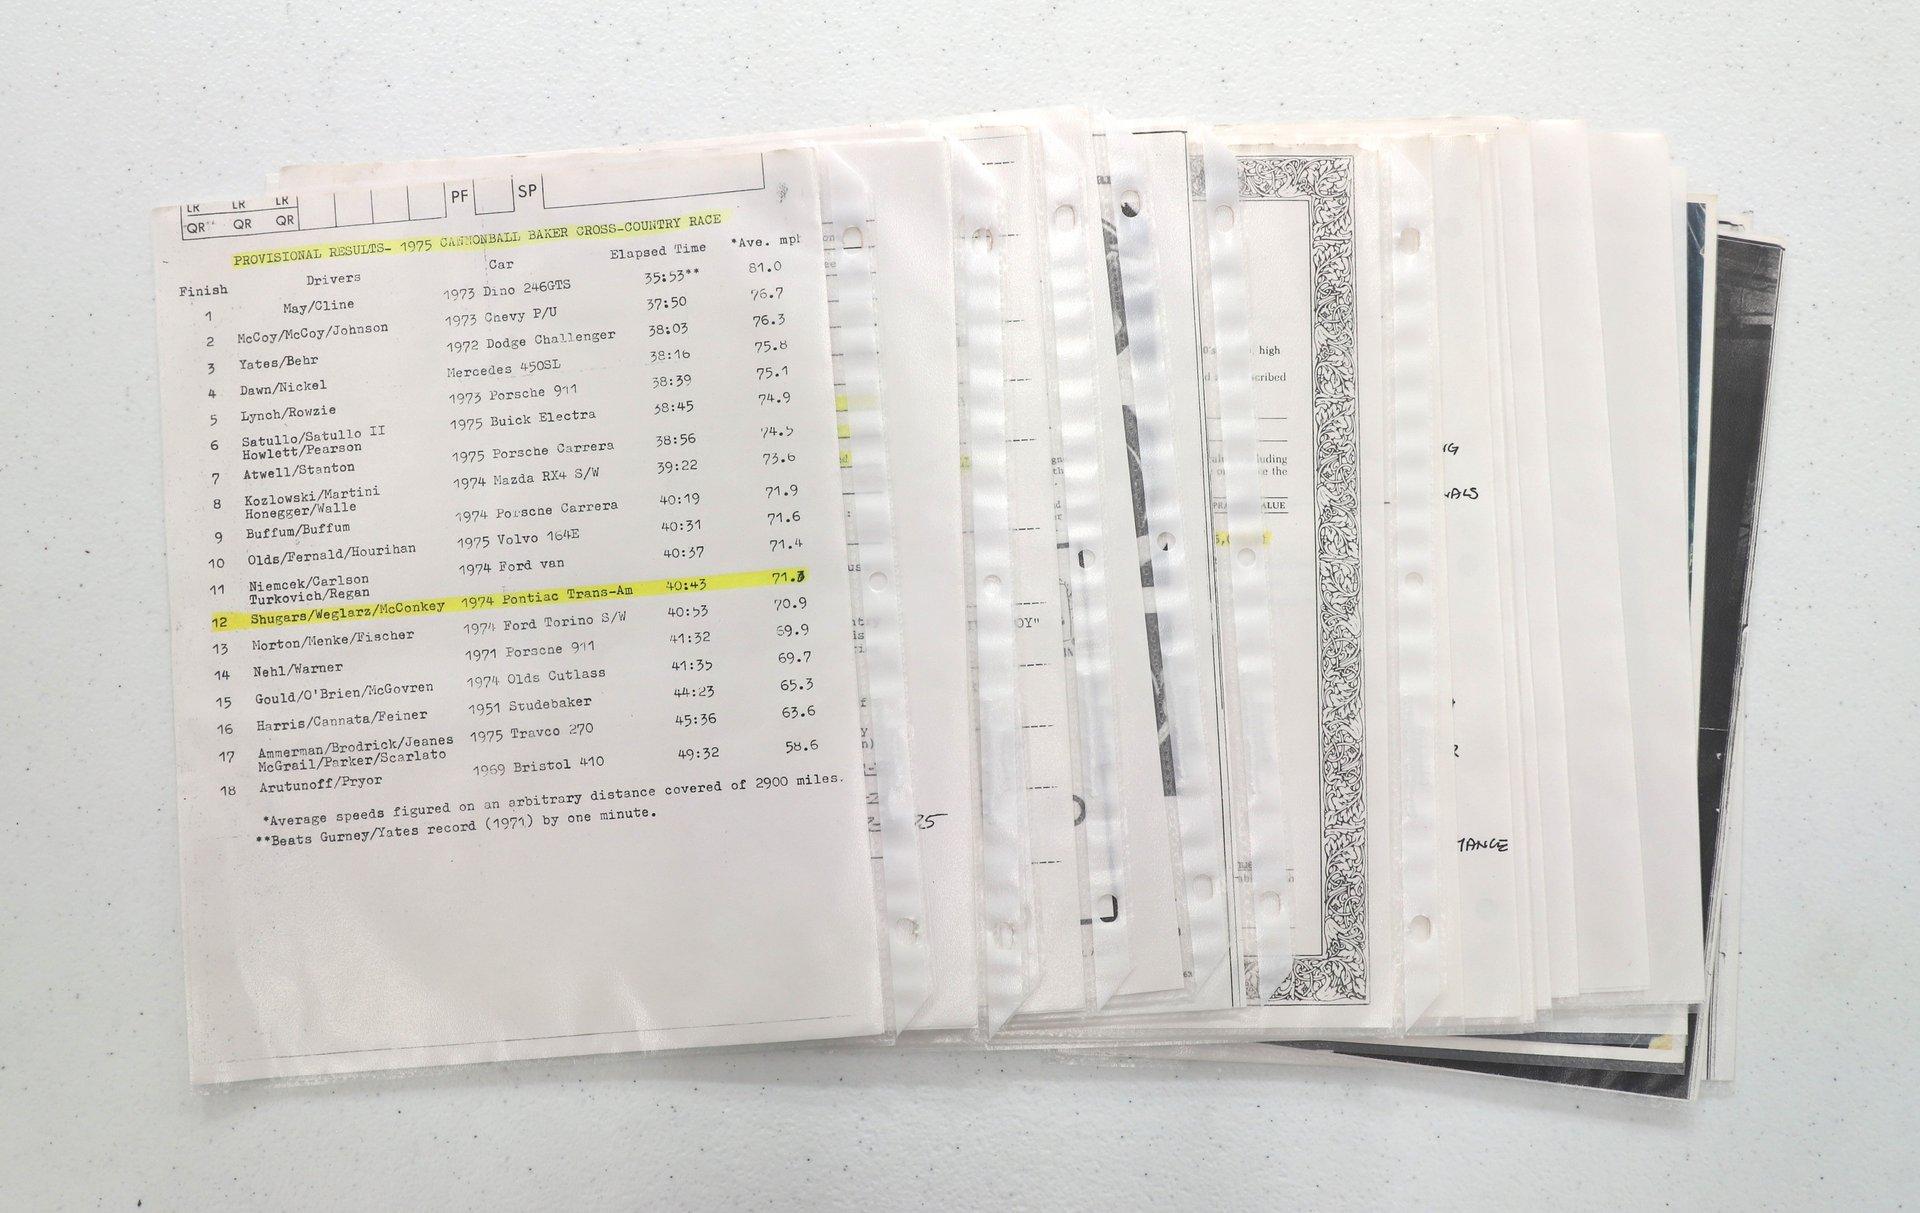 LR LR LR
QR QR QR PF SP
PROVISIONAL RESULTS- 1975 CANNONBALL BAKER CROSS-COUNTRY RACE
Finish Drivers Car Elapsed Time *Ave. mph
1 May/Cline 1973 Dino 246GTS 35:53** 81.0
2 McCoy/McCoy/Johnson 1973 Chevy P/U 37:50 76.7
3 Yates/Behr 1972 Dodge Challenger 38:03 76.3
4 Dawn/Nickel Mercedes 450SL 38:16 75.8
5 Lynch/Rowzie 1973 Porsche 911 38:39 75.1
6 Satullo/Satullo II 1975 Buick Electra 38:45 74.9
Howlett/Pearson
7 Atwell/Stanton 1975 Porsche Carrera 38:56 74.5
8 Kozlowski/Martini 1974 Mazda RX4 S/W 39:22 73.6
Honegger/Walle
9 Buffum/Buffum 1974 Porsche Carrera 40:19 71.9
10 Olds/Fernald/Hourihan 1975 Volvo 164E 40:31 71.6
11 Niemcek/Carlson 1974 Ford van 40:37 71.4
Turkovich/Regan
12 Shugars/Weglarz/McConkey 1974 Pontiac Trans-Am 40:43 71.3
13 Morton/Menke/Fischer 1974 Ford Torino S/W 40:53 70.9
14 Nehl/Warner 1971 Porsche 911 41:32 69.9
15 Gould/O'Brien/McGovren 1974 Olds Cutlass 41:35 69.7
16 Harris/Cannata/Feiner 1951 Studebaker 44:23 65.3
17 Ammerman/Brodrick/Jeanes 1975 Travco 270 45:36 63.6
McGrail/Parker/Scarlato
18 Arutunoff/Pryor 1969 Bristol 410 49:32 58.6
*Average speeds figured on an arbitrary distance covered of 2900 miles.
**Beats Gurney/Yates record (1971) by one minute.
25
OY"
high
cribed
luding
the
ALUE
NG
NALS
TANCE